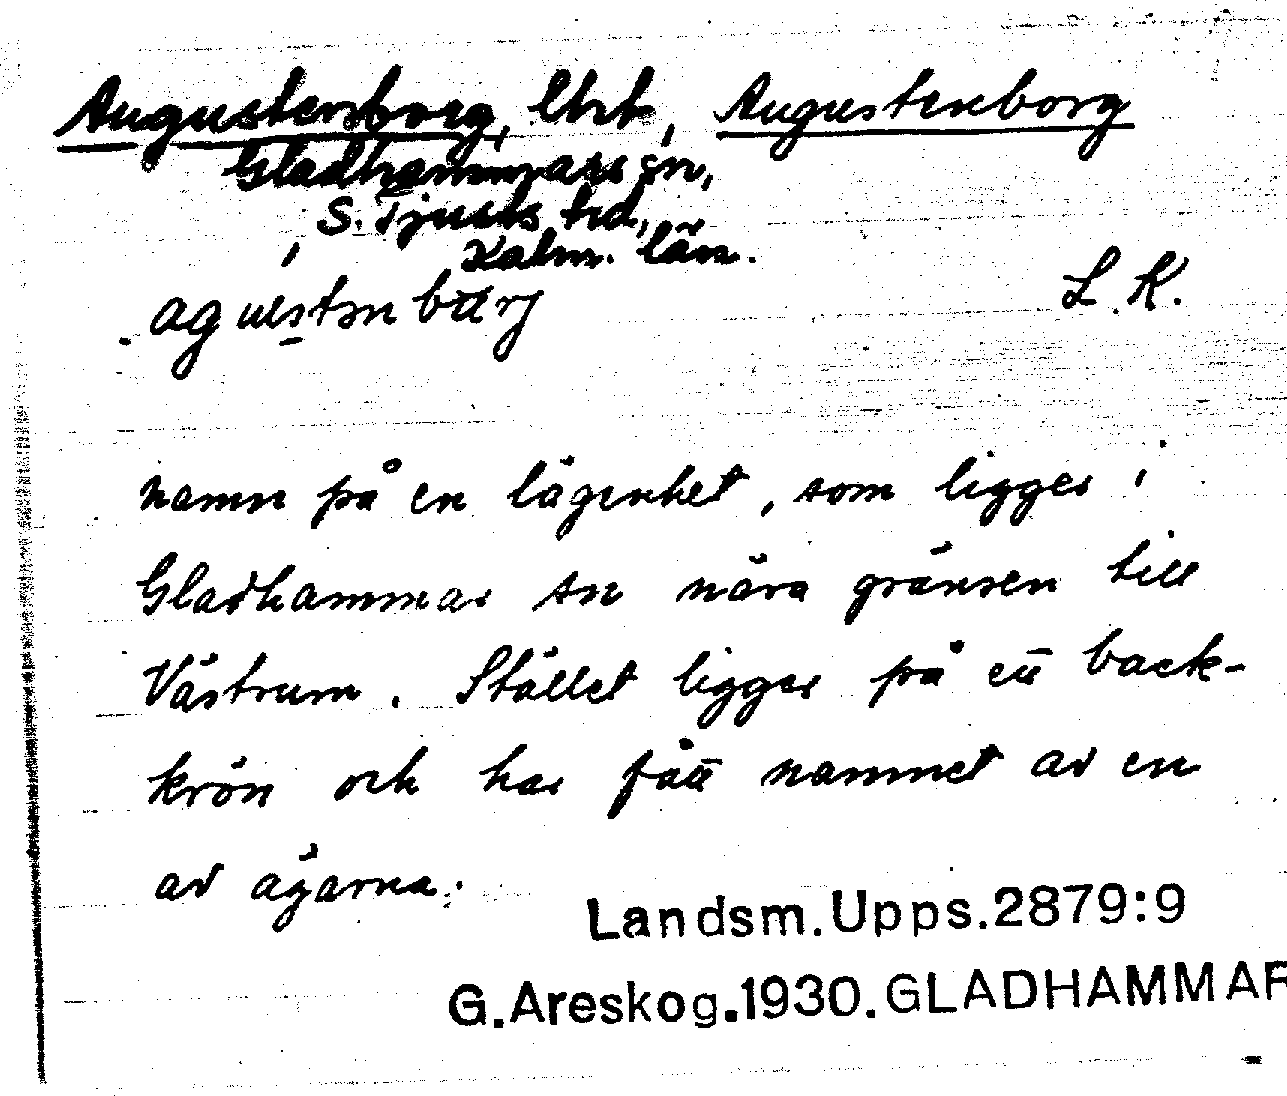 Augustenborg, lht, Augustenborg
Gladhammars sn,
S. Tjusts hd,
Kalm. län.
L. K.
namn på en lägenhet, som ligger i
Gladhammar sn nära gränsen till
Västrum. Stället ligger på ett back-
krön och har fått namnet av en
av ägarna.
Landsm.Upps.2879:9
G.Areskog.1930.GLADHAMMAR